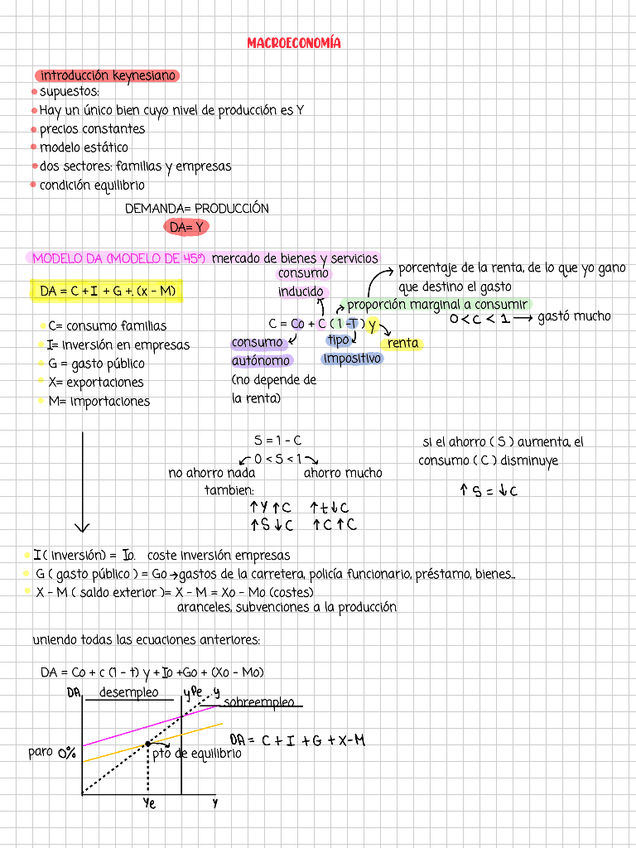 MACROECONOMÍA
introducción keynesiano
supuestos:
Hay un único bien cuyo nivel de producción es Y
precios constantes
modelo estático
dos sectores: familias y empresas
condición equilibrio
DEMANDA= PRODUCCIÓN
DA= Y
MODELO DA (MODELO DE 45º) mercado de bienes y servicios
DA = C + I + G +. (x - M)
C= consumo familias
I= inversión en empresas
G = gasto público
X= exportaciones
M= importaciones
consumo
inducido
porcentaje de la renta, de lo que yo gano
que destino el gasto
proporción marginal a consumir
0 < c < 1 → gastó mucho
C = Co + C (1 - T) y
consumo
autónomo
(no depende de
la renta)
tipo
impositivo
renta
S = 1 - C
0 < S < 1
no ahorro nada
ahorro mucho
tambien:
↑Y ↑C ↑t↓C
↑S↓C ↑C↑C
si el ahorro ( S ) aumenta, el
consumo ( C ) disminuye
↑ S = ↓C
I ( inversión) = Io. coste inversión empresas
G ( gasto público ) = Go →gastos de la carretera, policía funcionario, préstamo, bienes...
X - M ( saldo exterior )= X - M = Xo - Mo (costes)
aranceles, subvenciones a la producción
uniendo todas las ecuaciones anteriores:
DA = Co + c (1 - t) y + Io +Go + (Xo - Mo)
DA desempleo yPe y
sobreempleo
DA = C + I + G + X-M
paro 0%
pto de equilibrio
Ye y